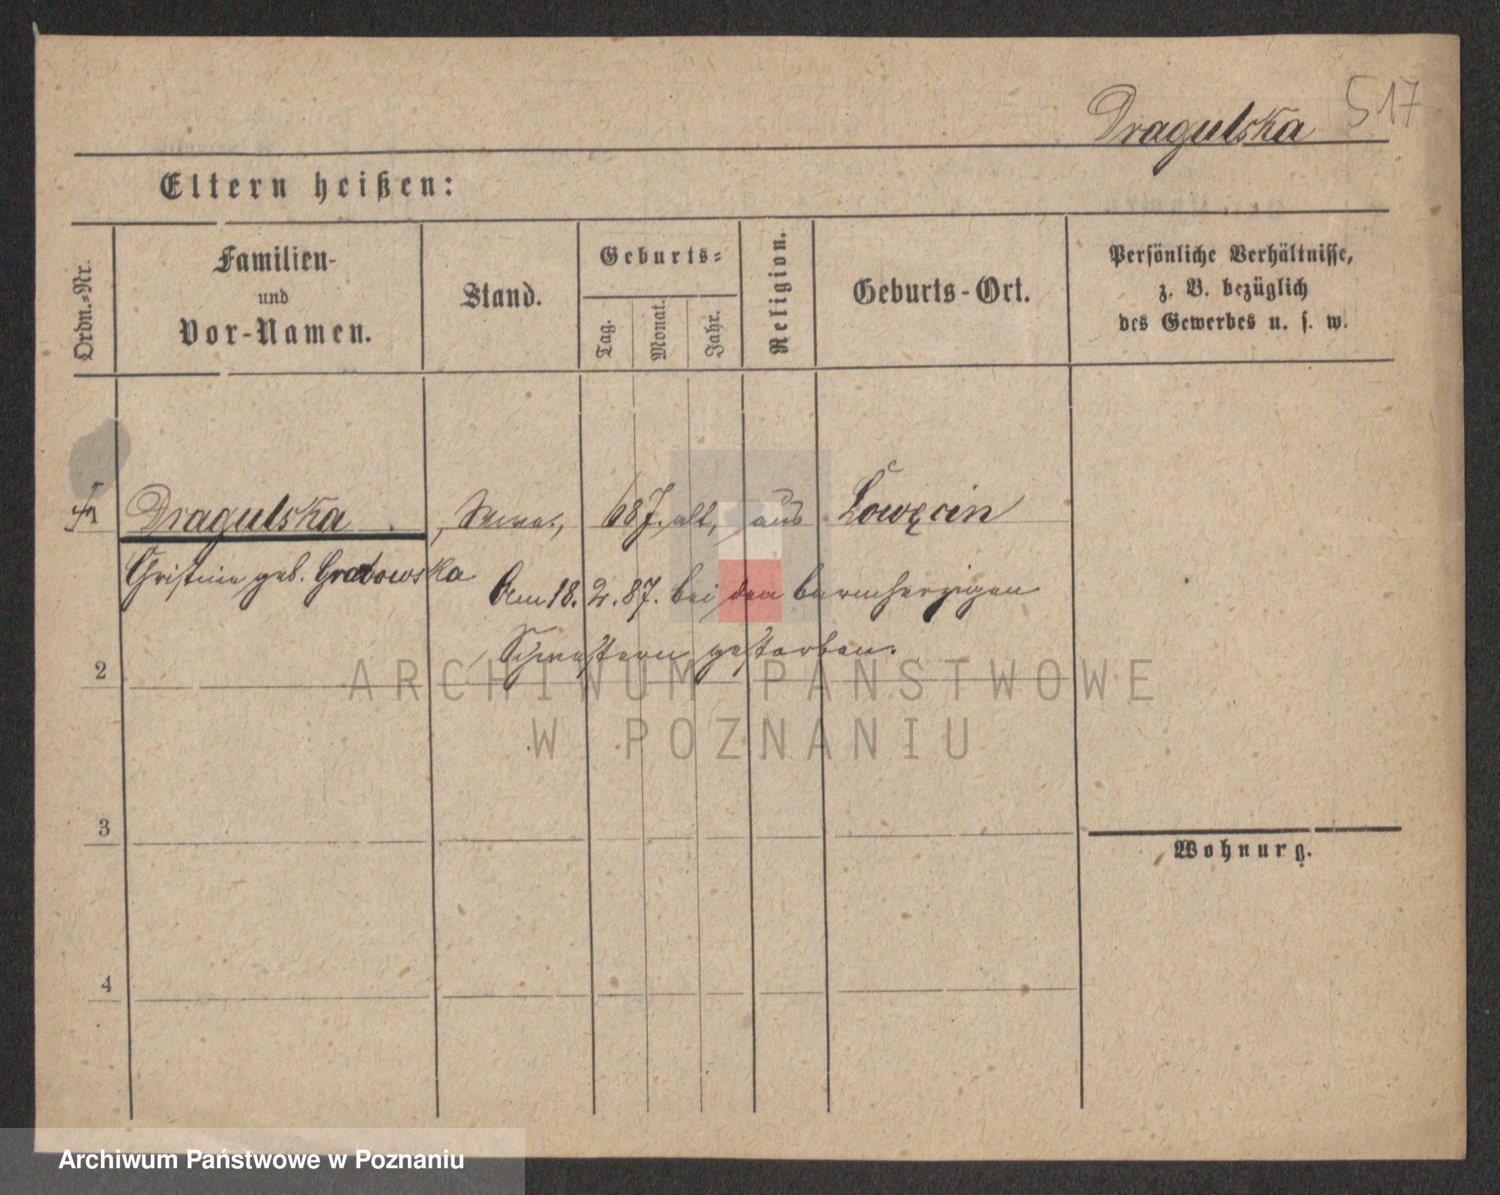 Dragulska 517
Eltern heißen:
Ordn.-Nr.
Familien-
und
Vor-Namen.
Stand.
Geburts-
Tag.
Monat.
Jahr.
Religion.
Geburts-Ort.
Persönliche Verhältnisse,
z. B. bezüglich
des Gewerbes u. s. w.
1 Dragulska, Wwe., 68 J. alt, aus Łowęcin
Christine geb. Grabowska
Am 18. 2. 87. bei den barmherzigen
Schwestern gestorben.
2
3
Wohnung.
4
ARCHIWUM PAŃSTWOWE
W POZNANIU
Archiwum Państwowe w Poznaniu